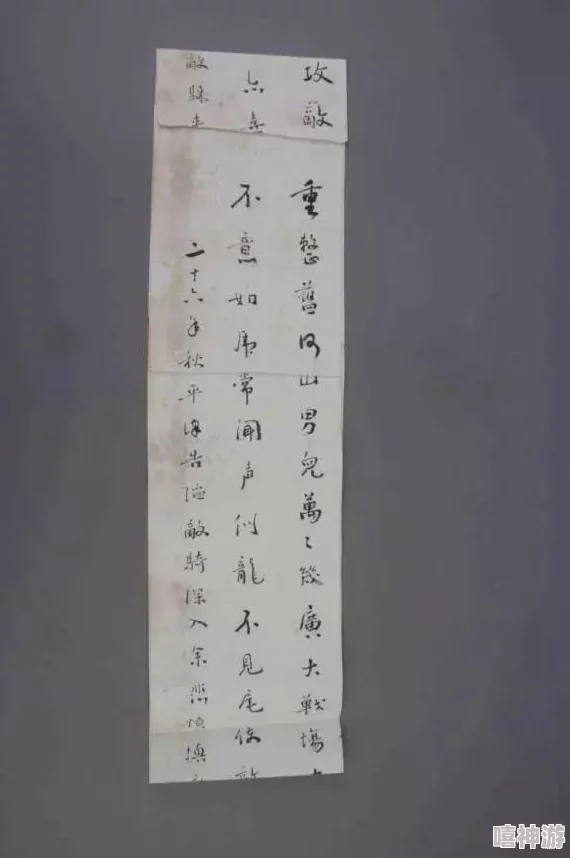 攻敵
亦
敵
重整舊河山男兒萬〻幾廣大戰場
不意如虎常聞声似龍不見尾使
二十六年秋平津告陷敵騎深入余悲憤填
嘻神游